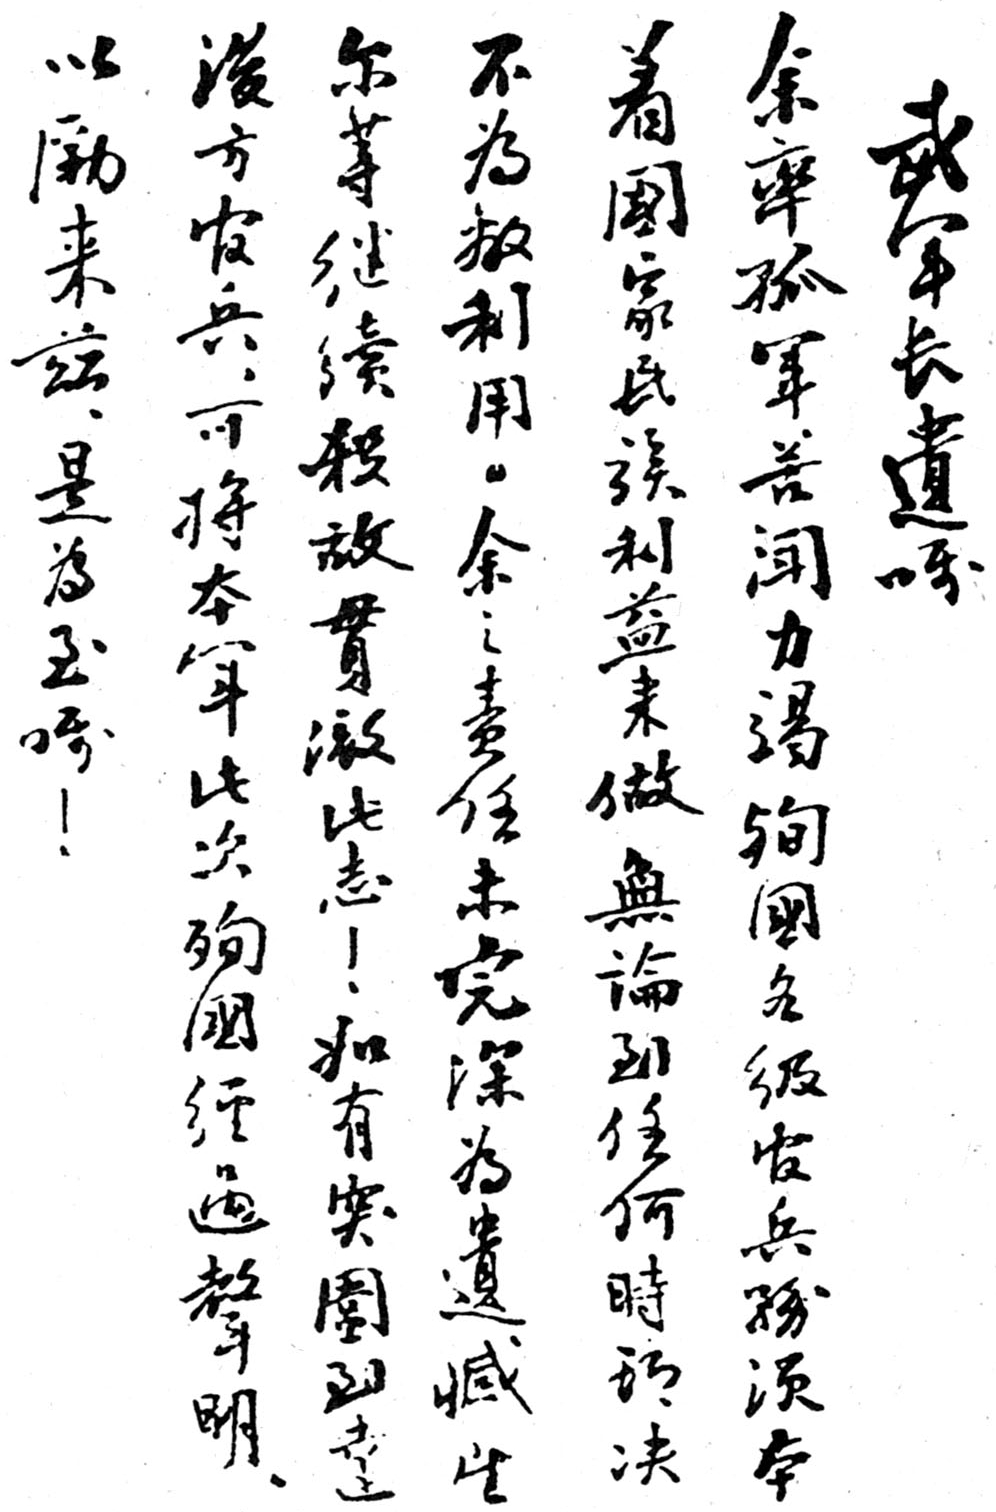 武军长遺嘱
余率孤军苦闘力竭殉國各级官兵務須本
着國家民族利益来做無論到任何時期、决
不為敌利用。余之責任未完深為遺憾望
尔等继續殺敌貫澈此志！、如有突圍到達
後方官兵、可将本军此次殉國经過聲明、
以勵来兹、是為至嘱！、